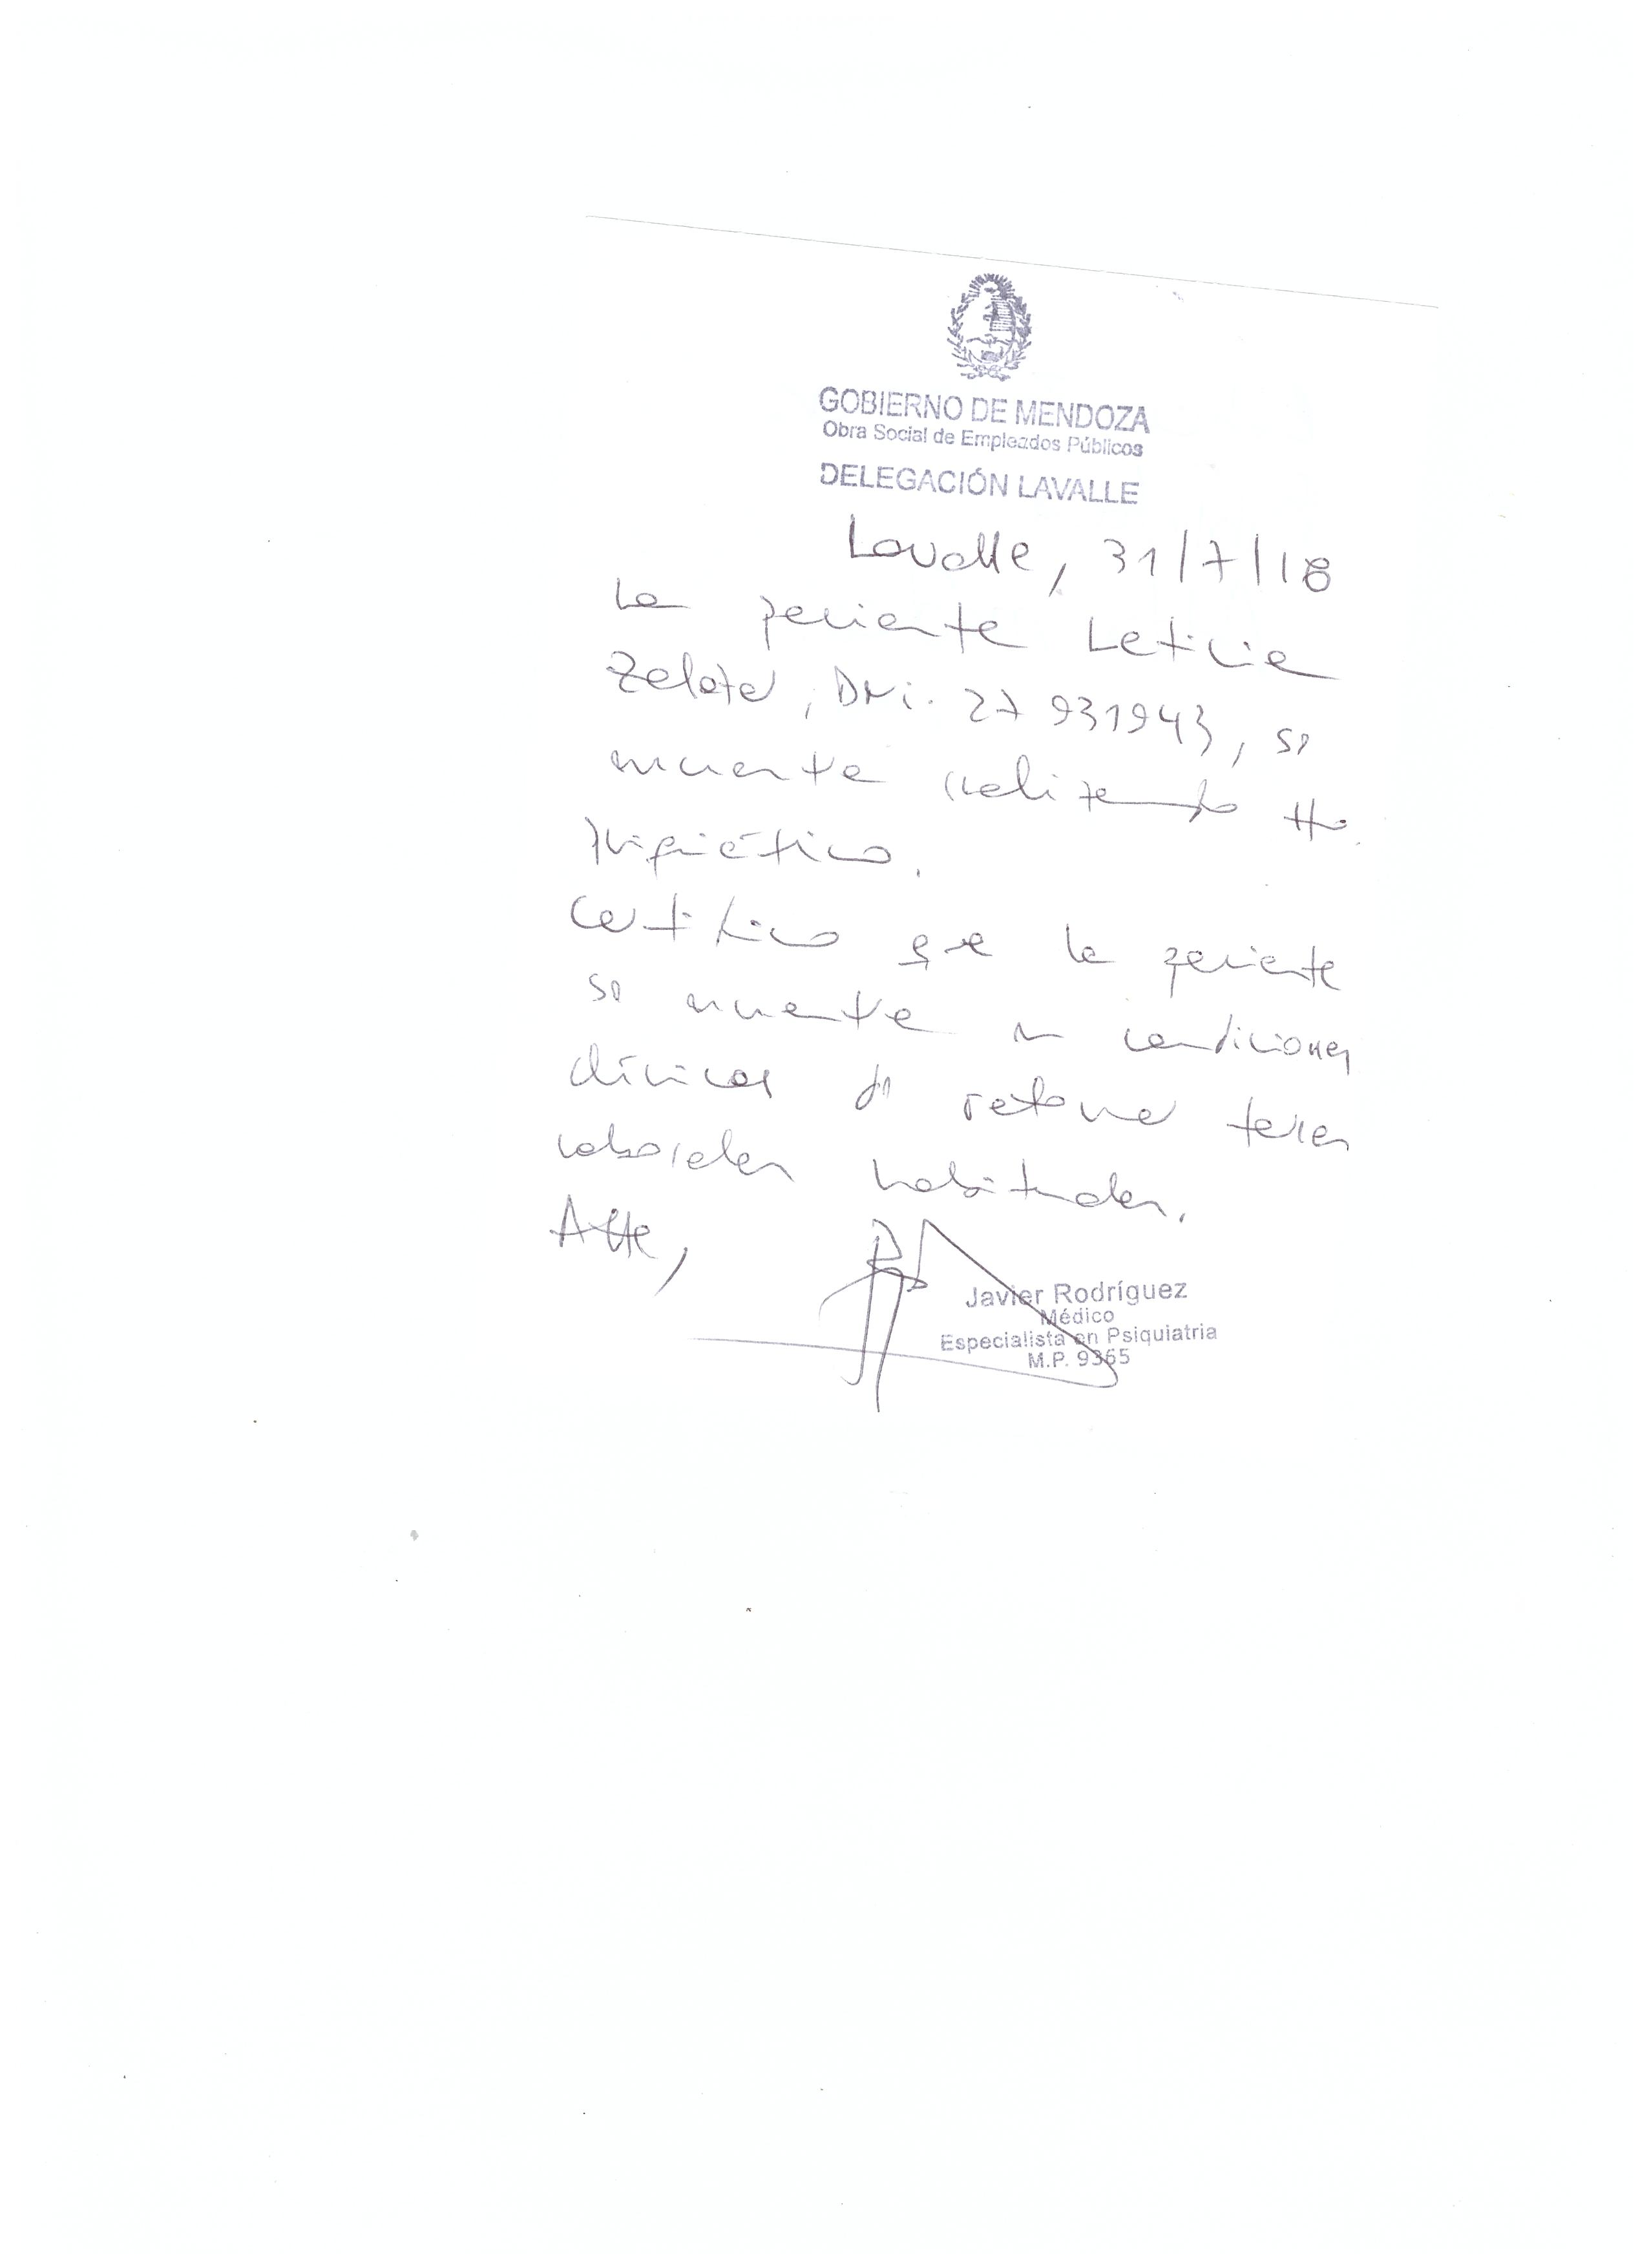 GOBIERNO DE MENDOZA
Obra Social de Empleados Públicos
DELEGACIÓN LAVALLE
Lavalle, 31/7/18
La paciente Leticia
DNI. 27 931943, se
encuentra realizando tto.
psiquiátrico.
Certifico que la paciente
se encuentra en condiciones
clínicas de retomar tareas
laborales habituales.
Atte,
Javier Rodríguez
Médico
Especialista en Psiquiatria
M.P. 9365